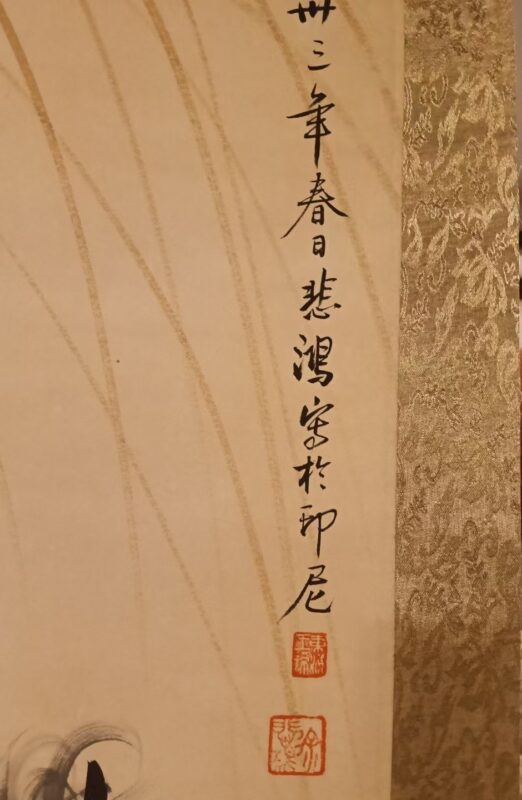 卅三年春日悲鴻寫於印尼